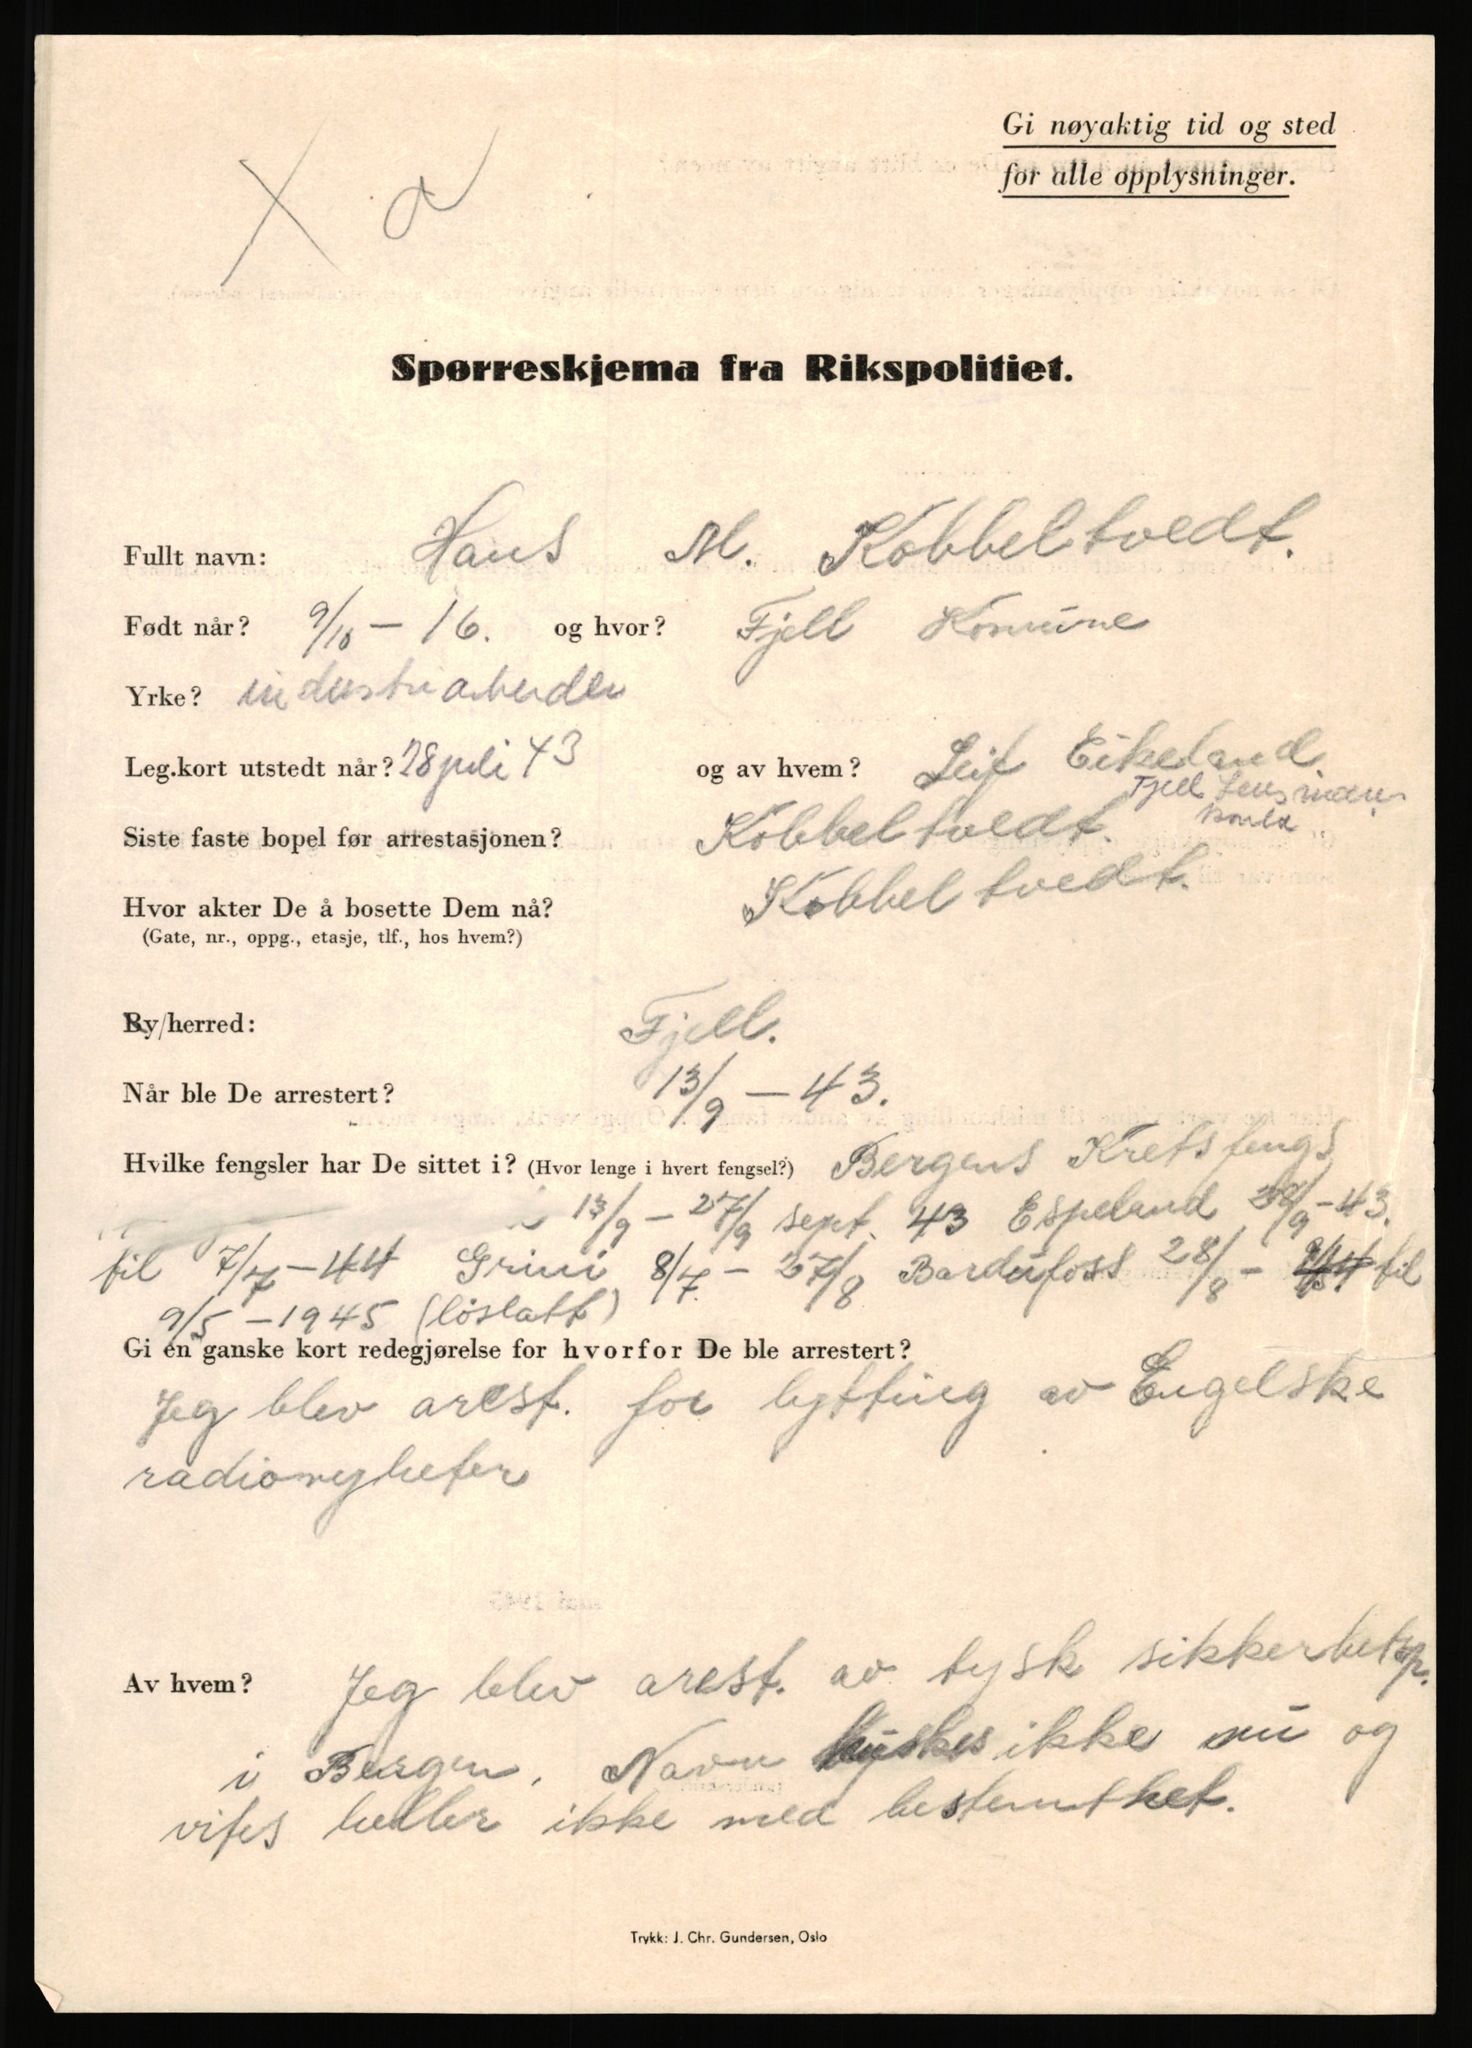 Gi nøyaktig tid og sted
for alle opplysninger.
Spørreskjema fra Rikspolitiet.
Fullt navn: Hans M. Kobbeltvedt.
Født når? 9/10 – 16. og hvor? Fjell Komune
Yrke? industriarbeider
Leg.kort utstedt når? 28 juli 43 og av hvem? Leif Eikeland
Fjell Lensman
Siste faste bopel før arrestasjonen? Kobbeltvedt.
Hvor akter De å bosette Dem nå? Kobbeltvedt.
(Gate, nr., oppg., etasje, tlf., hos hvem?)
By/herred: Fjell.
Når ble De arrestert? 13/9 – 43.
Hvilke fengsler har De sittet i? (Hvor lenge i hvert fengsel?) Bergens Kretsfengs
13/9 – 27/9 sept. 43 Espeland 28/9 – 43.
til 7/7 – 44 Grini 8/7 – 27/8 Bardufoss 28/8 – til
9/5 – 1945 (løslatt)
Gi en ganske kort redegjørelse for hvorfor De ble arrestert?
Jeg blev arest. for lytting av Engelske
radionyheter
Av hvem? Jeg blev arest. av tysk sikkerhetsp.
i Bergen. Navn huskes ikke nu og
vites heller ikke med bestemthet.
Trykk: J. Chr. Gundersen, Oslo